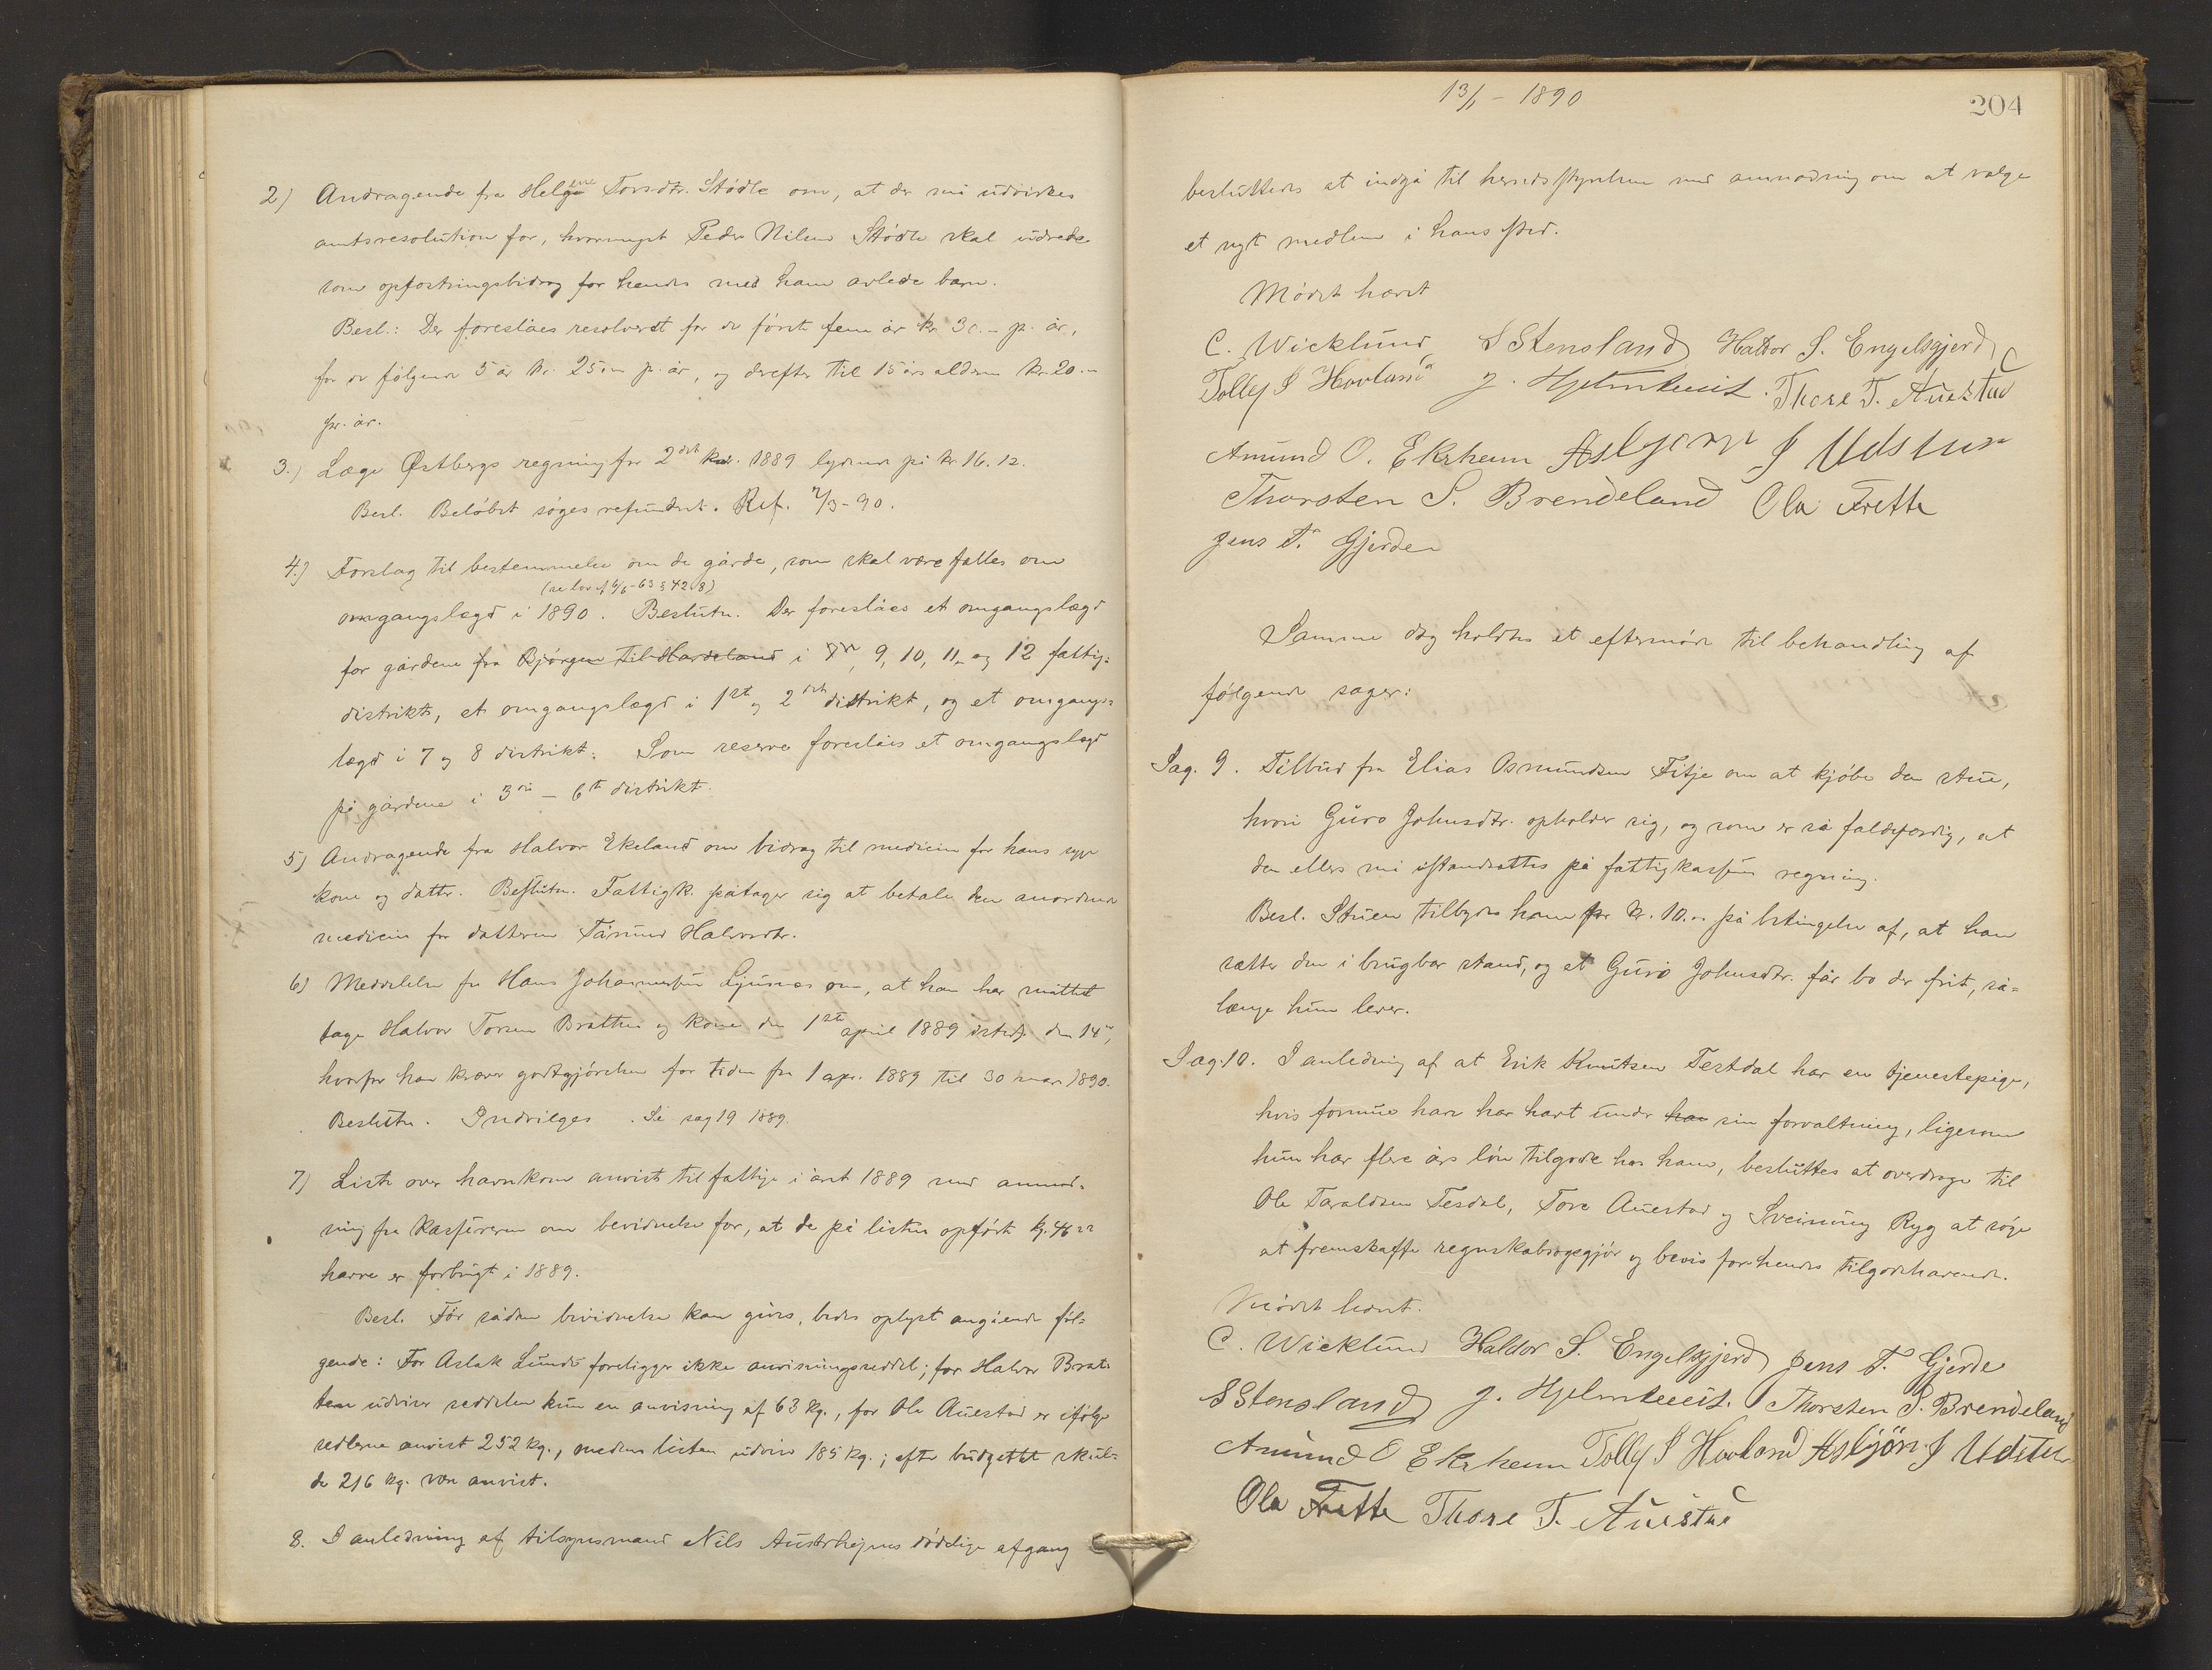 2) Andragende fra Helgene Torsdtr. Stödle om, at der må udvirkes
amtsresolution for, hvormeget Peder Nilsen Stödle skal udrede
som opfostringsbidrag for hendes med ham avlede barn.
Besl.: Der foreslåes resolveret for de förste fem år kr. 30.- p. år,
for de fölgende 5 år kr. 25.- p. år, og derefter til 15 års alderen kr. 20.-
pr. år.
3.) Læge Østbergs regning for 2det kv. 1889 lydende på kr. 16.12.
Besl. Belöbet söges refunderet. Ref. 7/3-90.
4.) Forslag til bestemmelse om de gårde, som skal være fælles om
(se lov af 6/6-63 § 42.8)
omgangslægd i 1890. Beslutn. Der foreslåes et omgangslægd
for gårdene fra Bjørgen til Hardeland i 9, 10, 11, og 12 fattig-
distrikt, et omgangslægd i 1ste og 2det distrikt, og et omgangs-
lægd i 7 og 8 distrikt. Som reserve foreslåes et omgangslægd
på gårdene i 3die - 6te distrikt.
5) Andragende fra Halvor Ekeland om bidrag til medicin for hans syge
kone og datter. Beslutn. Fattigk. påtager sig at betale den anordnede
medicin for datteren Halvorsdtr.
6) Meddelelse fra Hans Johannessen Ljusnes om, at han har måttet
tage Halvor Torsen Bråtten og kone den 1ste april 1889 istedf. den 14de,
hvorfor han kræver godtgjörelse for tiden fra 1 apr. 1889 til 30 mars 1890.
Beslutn. Indvilges. Se sag 19 1889.
7) Liste over havrekorn anvist til fattige i året 1889 med anmod-
ning fra kassereren om bevidnelse for, at de på listen opförte kg.
havre er forbrugt i 1889.
Besl. För sådan bevidnelse kan gives, bedes oplyst angående föl-
gende: For Aslak Lunde foreligger ikke anvisningsseddel; for Halvor Bråt-
ten udviser seddelen kun en anvisning af 63 kg., for Ole Auestad er ifölge
sedlerne anvist 252 kg., medens listen udviser 185 kg.; efter budgettet skul-
de 216 kg. være anvist.
8. I anledning af tilsynsmand Nils Austrheims dödelige afgang
13/1 - 1890
204
besluttedes at indgå til herredsstyrelsen med anmodning om at vælge
et nyt medlem i hans sted.
Mödet hævet
C. Wicklund S Stensland Haldor S. Engelsgjerd
Tolley S Hovland J. Hjelmkveit. Thore T. Auestad
Amund O. Ekrheim Asbjørn J Udstuv
Thorsten S. Brendeland Ola Frette
Jens T. Gjerde
Samme dag holdtes et eftermöde til behandling af
fölgende sager:
Sag. 9. Tilbud fra Elias Osmundsen Fitje om at kjöbe den stue,
hvori Guro Johnsdtr. opholder sig, og som er så faldefærdig, at
den ellers må istandsættes på fattigkassens regning.
Besl. Stuen tilbydes ham for kr. 10.- på betingelse af, at han
sætter den i brugbar stand, og at Guro Johnsdtr. får bo der frit, så-
længe hun lever.
Sag. 10. I anledning af at Erik Knutsen Testdal har en tjenestepige,
hvis formue han har havt under han sin forvaltning, ligesom
hun har flere års lön tilgode hos ham, besluttes at overdrage til
Ole Taraldsen Tesdal, Tore Auestad og Sveinung Ryg at söge
at fremskaffe regnskabsopgjör og bevis for hendes tilgodehavende.
Mödet hævet.
C. Wicklund Haldor S. Engelsgjerd Jens T. Gjerde
S Stensland J. Hjelmkveit. Thorsten S. Brendeland
Amund O Ekrheim Tolley S Hovland Asbjörn J Udstuv
Ola Frette Thore T. Auestad